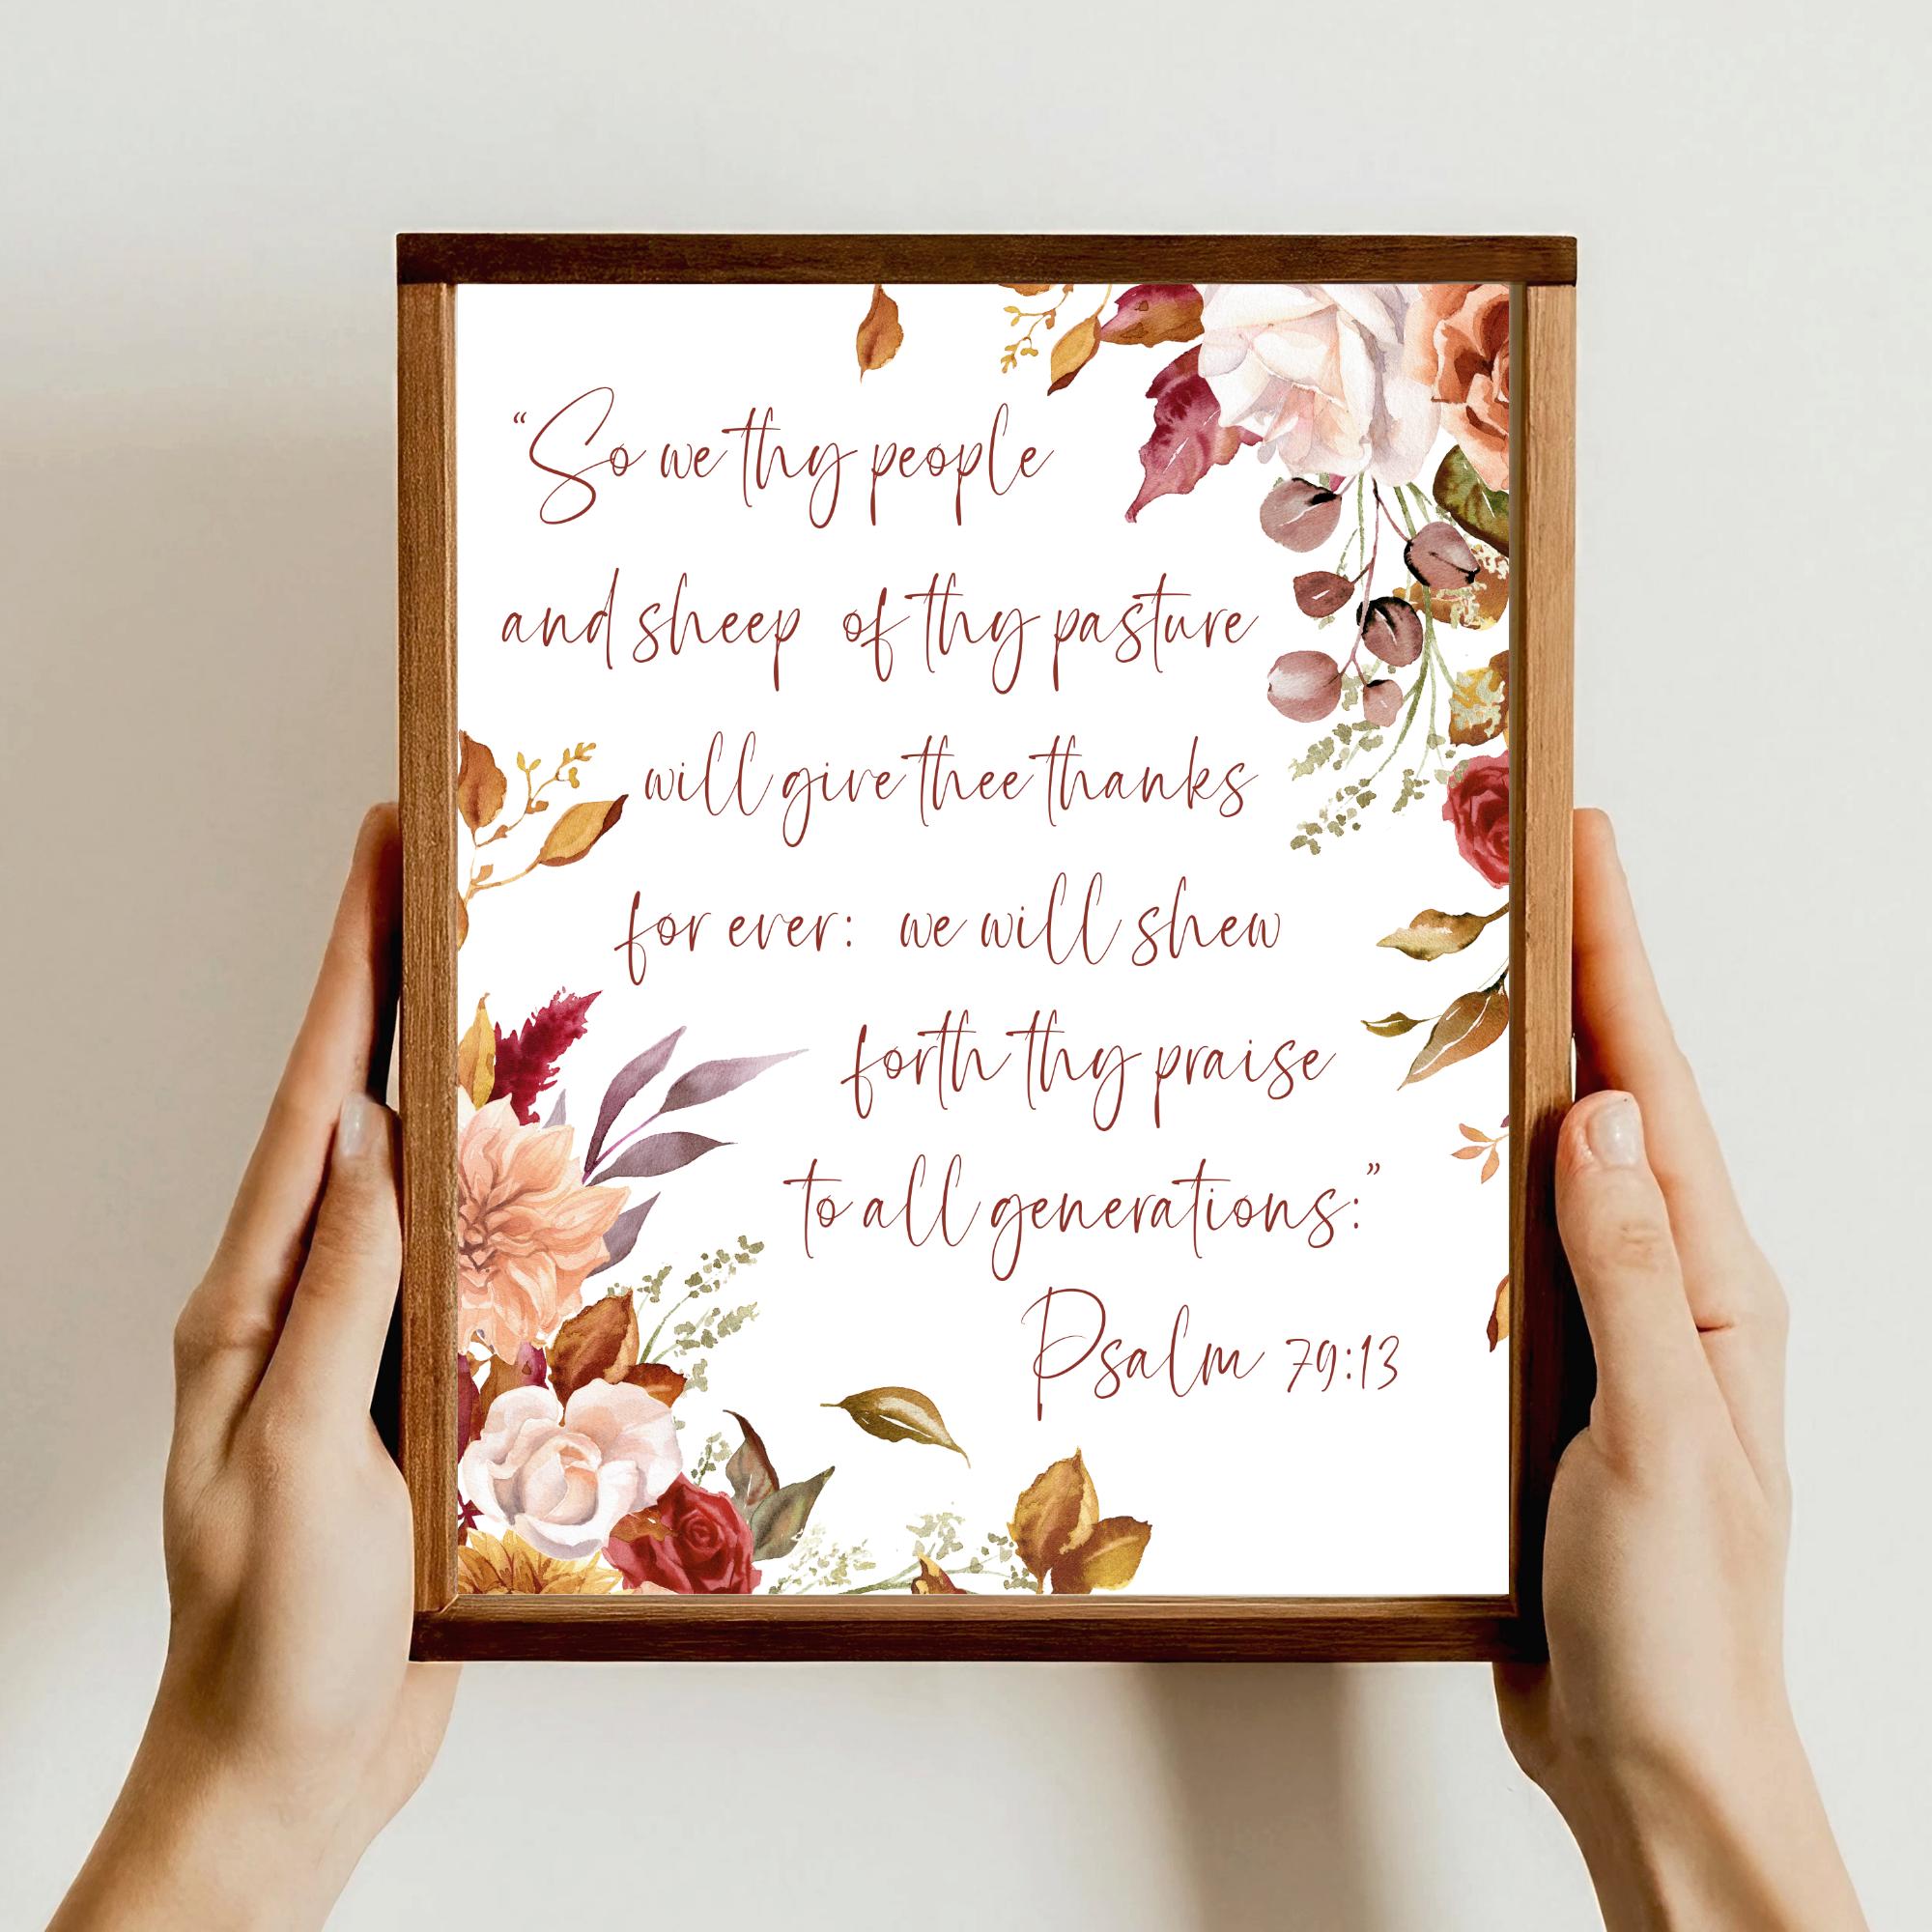 “So we thy people
and sheep of thy pasture
will give thee thanks
for ever: we will shew
forth thy praise
to all generations:”
Psalm 79:13